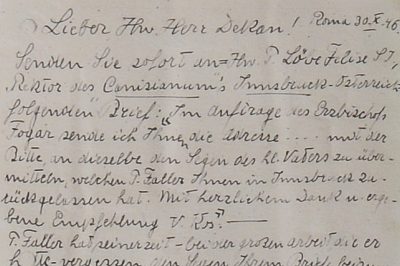 Lieber Hw. Herr Dekan! Roma 30.X.46.
Senden Sie sofort an = Hw. P. Löbe Felise S J,
Rektor des Canisianum's Innsbruck-Österreich
folgenden Brief: "Im Auftrage des Erzbischofs
Fogar sende ich Ihnen die Adresse .... mit der
Bitte, an dieselbe den Segen des hl. Vaters zu über-
mitteln, welchen P. Faller Ihnen in Innsbruck zu-
rückgelassen hat. Mit herzlichem Dank u. erge-
bene Empfehlung
P. Faller hat seinerzeit – bei der grosen Arbeit die er
hatte – vergessen den